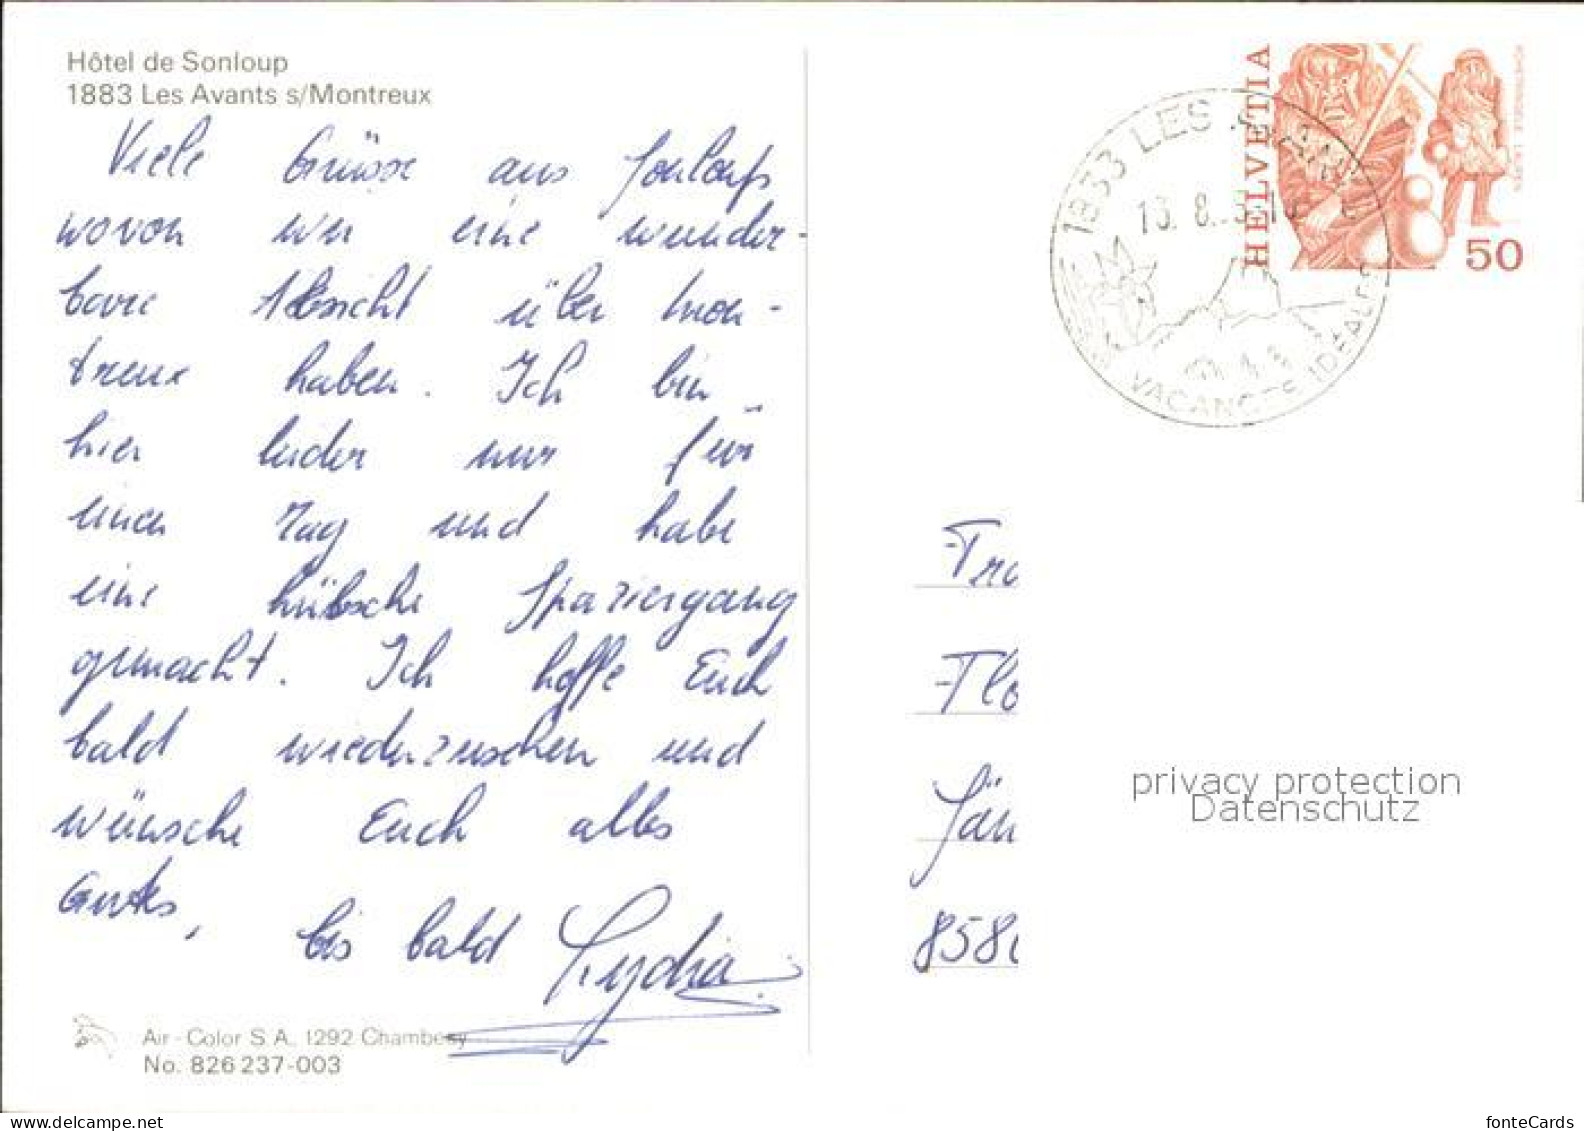 Hôtel de Sonloup
1883 Les Avants s/Montreux
Viele Grüsse aus Sonloup,
wovon wir eine wunder-
bare Absicht über Mon-
treux haben. Ich bin
hier leider nur für
einen Tag und habe
eine hübsche Spaziergang
gemacht. Ich hoffe Euch
bald wiederzusehen und
wünsche Euch alles
Gutes,
bis bald Lydia
Air-Color S.A., 1292 Chambésy
No. 826 237-003
HELVETIA
50
1833 LES AVANTS
13. 8.
VACANCES IDEALES
Fra
Flo
858
privacy protection
Datenschutz
fonteCards